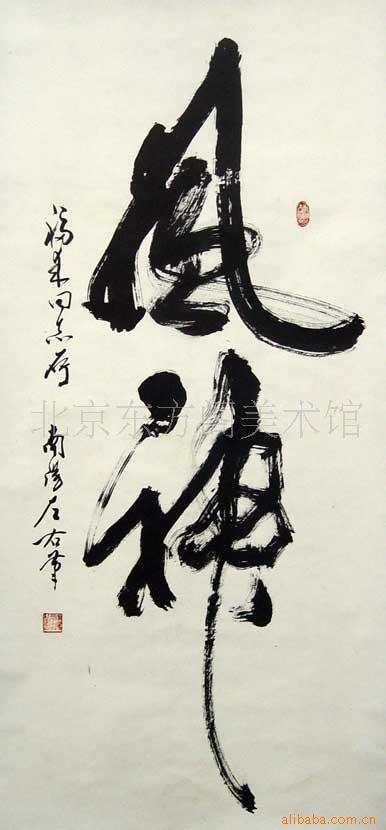 風神
福来同志
南陽左右筆
北京东方 美术馆
alibaba.com.cn